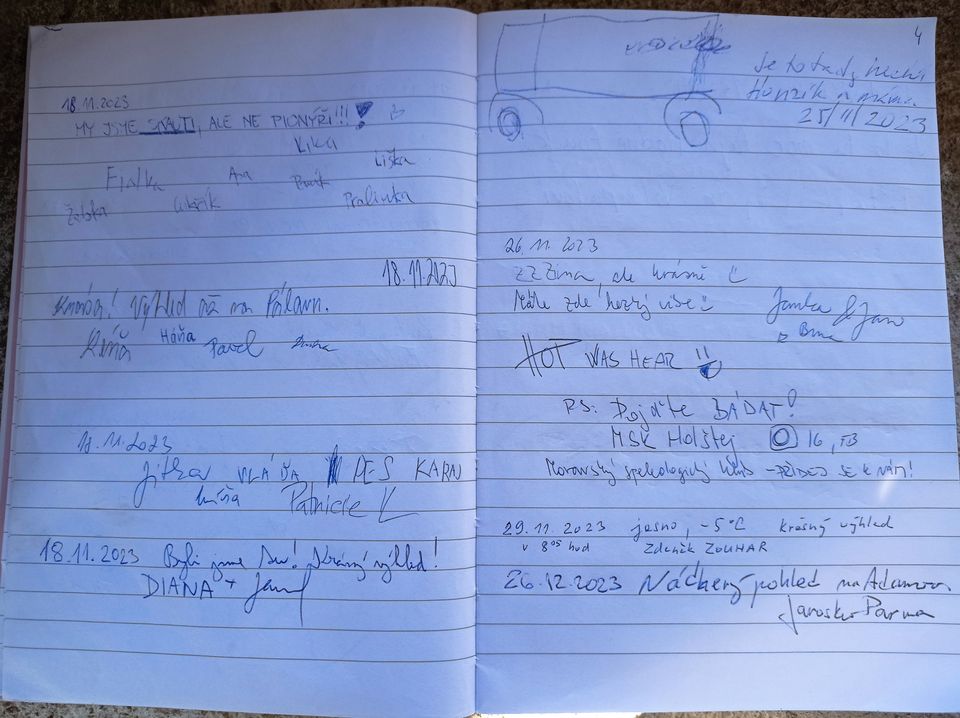 18.11.2023
MY JSME SKAUTI, ALE NE PIONÝŘI!!!
Kika
Fialka Liška
Žabka Pralinka
18.11.2023
Výhled až na Pálavu.
Háňa Pavel
18.11.2023
Jitka VLÁĎA PES KARAJ
Míša Patricie K
18.11.2023 Byli jsme tu! Krásný výhled!
DIANA +
4
Je to tady hezké
Honzík a máma.
25/11/2023
26.11.2023
ZZZima, ale krásně
Máte zde hezký
Janka & Jan
z Brna
HOT WAS HEAR !!
P.S.: Pojďte BÁDAT!
MSK Holštej 16, FB
Moravský speleologický klub – PŘIDEJ SE K NÁM!
29.11.2023 jasno, -5°C krásný výhled
v 8⁰⁵ hod Zdeněk ZOUHAR
26.12.2023 Nádherný pohled na Adamov.